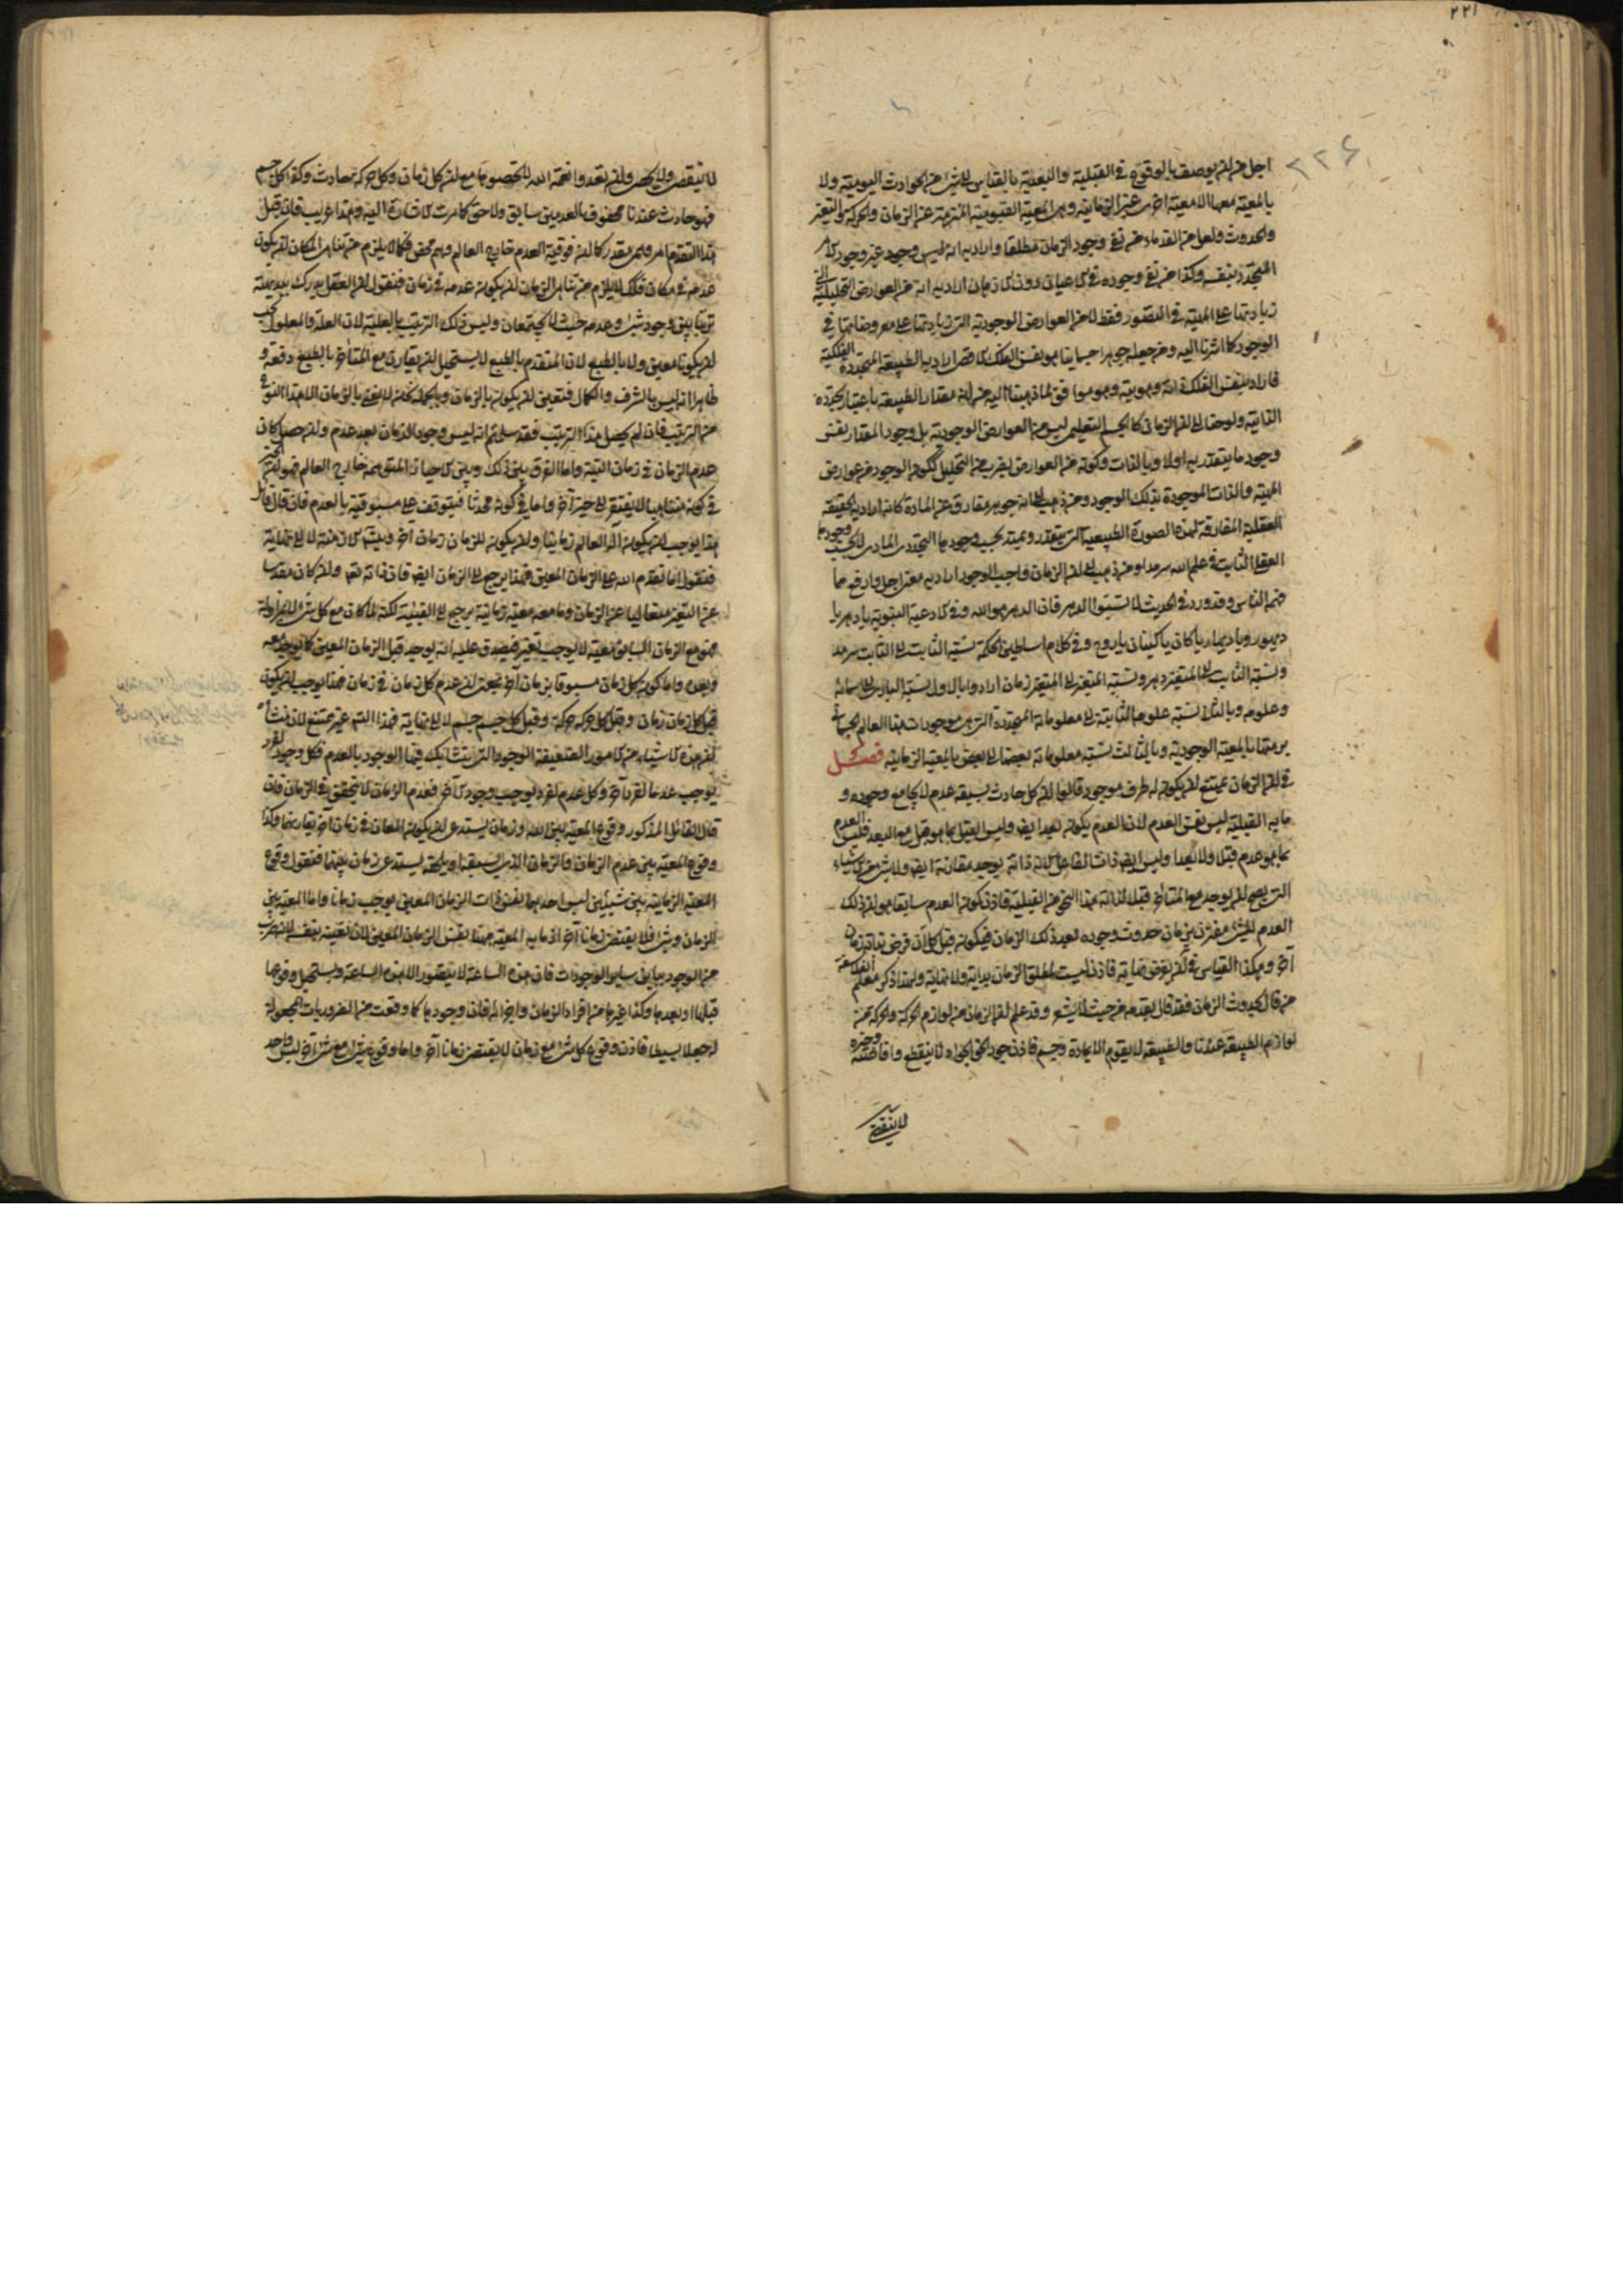 ٢٢١
٢٢۶
اجل من ان يوصف بالوقوع فى القبلية والبعدية بالقياس الى شئ من الحوادث اليومية ولا
بالمعية معها الا معية اخرى غير الزمانية وهى المعية القيومية المنزهة عن الزمان والحركة والتغير
والحدوث ولعل من القدماء من نفى وجود الزمان مطلقا واراد به انه ليس وجود غير وجود الامر
المتجدد بنفسه وكذا من نفى وجوده فى الاعيان دون الاذهان اراد به انه من العوارض التحليلية التى
زيادتها على المهية فى التصور فقط لا من العوارض الوجودية التى زيادتها على معروضاتها فى
الوجود كما اشرنا اليه ومن جعله جوهرا جسمانيا هو نفس الفلك الاقصى اراد به الطبيعة المتجددة الفلكية
فاراد بنفس الفلك ذاته وهويته وهو موافق لما ذهبنا اليه من انه مقدار الطبيعة باعتبار تجدده
الذاتية ولو حقق ان الزمان كالجسم التعليمى ليس من العوارض الوجودية بل وجود المقدار نفس
وجود ما يتقدر به اولا وبالذات وكونه من العوارض بضرب من التحليل لكونه الوجود من عوارض
المهية والذات الموجودة بذلك الوجود ومن ذهب الى انه جوهر مفارق عن المادة كانه اراد به الحقيقة
العقلية المفارقة لهذه الصورة الطبيعية التى يتقدر ويمتد بحسب وجودها التجددى المادى لا بحسب وجودها
العقلى الثابت فى علم الله سرمدا ومن ذهب الى ان الزمان واجب الوجود اراد به معنى اجل وارفع مما
فهمه الناس وقد ورد فى الحديث لا تسبوا الدهر فان الدهر هو الله وفى الادعية النبوية يا دهر يا
ديهور ويا ديهار يا كان يا كينان يا روح وفى كلام اساطين الحكمة نسبة الثابت الى الثابت سرمد
ونسبة الثابت الى المتغير دهر ونسبة المتغير الى المتغير زمان ارادوا بالاول نسبة البارى الى اسمائه
وعلومه وبالثانى نسبة علومه الثابتة الى معلوماته المتجددة التى هى موجودات هذا العالم الجسمانى
برمتها بالمعية الوجودية وبالثالث نسبة معلوماته بعضها الى بعض بالمعية الزمانية فصل
فى ان الزمان يمتنع ان يكون له طرف موجود قالوا ان كل حادث يسبقه عدم لا يجامع وجوده و
ما به القبلية ليس نفس العدم لان العدم يكون بعد ايضا وليس القبل بما هو قبل مع البعد فليس العدم
بما هو عدم قبلا ولا بعدا وليس ايضا ذات الفاعل لان ذاته يوجد مقارنة ايضا ولا شئ من الاشياء
التى يصح ان يوجد مع المتاخر قبلا لذاته بهذا النحو من القبلية فاذن كون العدم سابقا هو ان ذلك
العدم للشئ مقترن بزمان حدوث وجوده بعد ذلك الزمان فيكون قبل كل آن فرض بدايته زمان
آخر وهكذا القياس فى ان يفرض نهايته فاذن ليست لمطلق الزمان بداية ولا نهاية ولهذا ذكر معلم الفلاسفة
من قال بحدوث الزمان فقد قال بقدمه من حيث لا يشعر وقد علم ان الزمان من لوازم الحركة والحركة من
لوازم الطبيعة عندنا والطبيعة لا يقوم الا بمادة وجسم فاذن جود الحق الجواد لا ينقطع وافاضته وخيره
لا ينقضى
لا ينقضى ولا يحصى وان تعدوا نعمة الله لا تحصوها مع ان كل زمان وكل حركة حادث وكذا كل جسم
فهو حادث عندنا محفوف بالعدمين سابق ولاحق كما مرت الاشارة اليه وهذا غريب فان قيل
هذا التقدم امر وهمى مقدر كما ان فوقية العدم خارج العالم وهم محض فكما لا يلزم من تناهى المكان ان يكون
عدمه فى مكان فكذلك لا يلزم من تناهى الزمان ان يكون عدمه فى زمان فنقول ان العقل يدرك ببديهته
ترتبا بين وجود شئ وعدمه حيث لا يجتمعان وليس ذلك الترتيب بالعلية لان العلة والمعلول يجب
ان يكونا معين ولا بالطبع لان المتقدم بالطبع لا يستحيل ان يقارن مع المتاخر بالطبع دفعة و
ظاهر انه ليس بالشرف والكمال فتعين ان يكون بالزمان وبالجملة نحن لا نعنى بالزمان الا هذا النوع
من الترتيب فان لم يحصل هذا الترتيب فقد سلم انه ليس وجود الزمان بعد عدم وان حصل كان
عدم الزمان فى زمان البتة واما الفرق بين ذلك وبين الاحياز المتوهمة خارج العالم فهو ان الحيز
فى كونه متناهيا لا يفتقر الى حيز آخر واما فى كونه محدثا فيتوقف على مسبوقية بالعدم فان قال قائل
هذا يوجب ان يكون اله العالم زمانيا وان يكون للزمان زمان آخر ويتسلسل الازمنة لا الى نهاية
فنقول اما تقدم الله على الزمان المعين فهذا يرجع الى الزمان ايضا فان ذاته تعالى وان كان مقدسا
عن التغير متعاليا عن الزمان وما معه معية زمانية يرجع الى الفينية لكنه لما كان مع كل شئ لا بمزاولة
فهو مع الزمان السابق معية لا يوجب تغيرا فيصدق عليه انه يوجد قبل الزمان المعين كما يوجد معه
وبعده واما كون كل زمان مسبوقا بزمان آخر بمعنى ان عدم كل زمان فى زمان فهذا يوجب ان يكون
قبل كل زمان زمان وقبل كل حركة حركة وقبل كل جسم جسم لا الى نهاية فهذا التسلسل غير ممتنع لان منشأه
ان هذه الاشياء من الامور الضعيفة الوجود التى يتشابك فيها الوجود بالعدم فكل وجود لفرد
يوجب عدما لفرد آخر وكل عدم لفرد يوجب وجود الآخر فعدم الزمان لا يتحقق الا فى الزمان فان
قال القائل المذكور وقوع المعية بين الله وزمان يستدعى ان يكون المعان فى زمان آخر يقارنهما وكذا
وقوع المعية بين عدم الزمان والزمان الذى يسبقه او يلحقه يستدعى زمان بينهما فنقول وقوع
المعية الزمانية بين شيئين ليس احدهما نفس ذات الزمان المعين يوجب زمانا واما المعية بين
الزمان وشئ فلا يقتضى زمانا آخر اذ ما به المعية ههنا نفس الزمان المعين لان تعينه بنفسه لانه ضرب
من الوجود يباين ساير الوجودات فان هذه الساعة لا يتصور الا هذه الساعة ويستحيل وقوعها
قبلها او بعدها وكذا غيرها من افراد الزمان واجزائه فان وجودها كما وقعت من الضروريات المجعولة
له جعلا بسيطا فاذن وقوع كل شئ مع زمان لا يقتضى زمانا آخر واما وقوع شئ مع شئ آخر ليس واحد